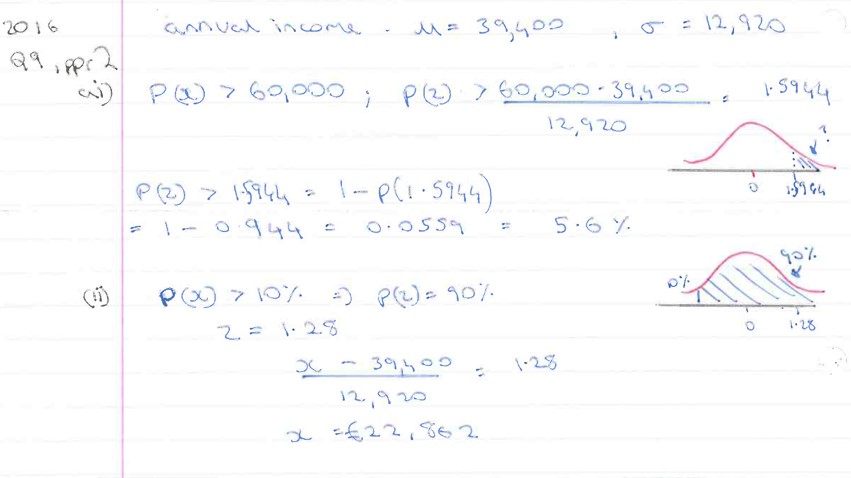 2016 annual income . μ = 39,400 , σ = 12,920
Q9, ppr 2
a(i) P(x) > 60,000 ; P(z) > 60,000 - 39,400 = 1.5944
12,920
?
0 1.5944
P(z) > 1.5944 = 1 - P(1.5944)
= 1 - 0.944 = 0.0559 = 5.6 %
(ii) P(x) > 10% => P(z) = 90%
10% 90%
0 1.28
z = 1.28
x - 39,400 = 1.28
12,920
x = £22,862